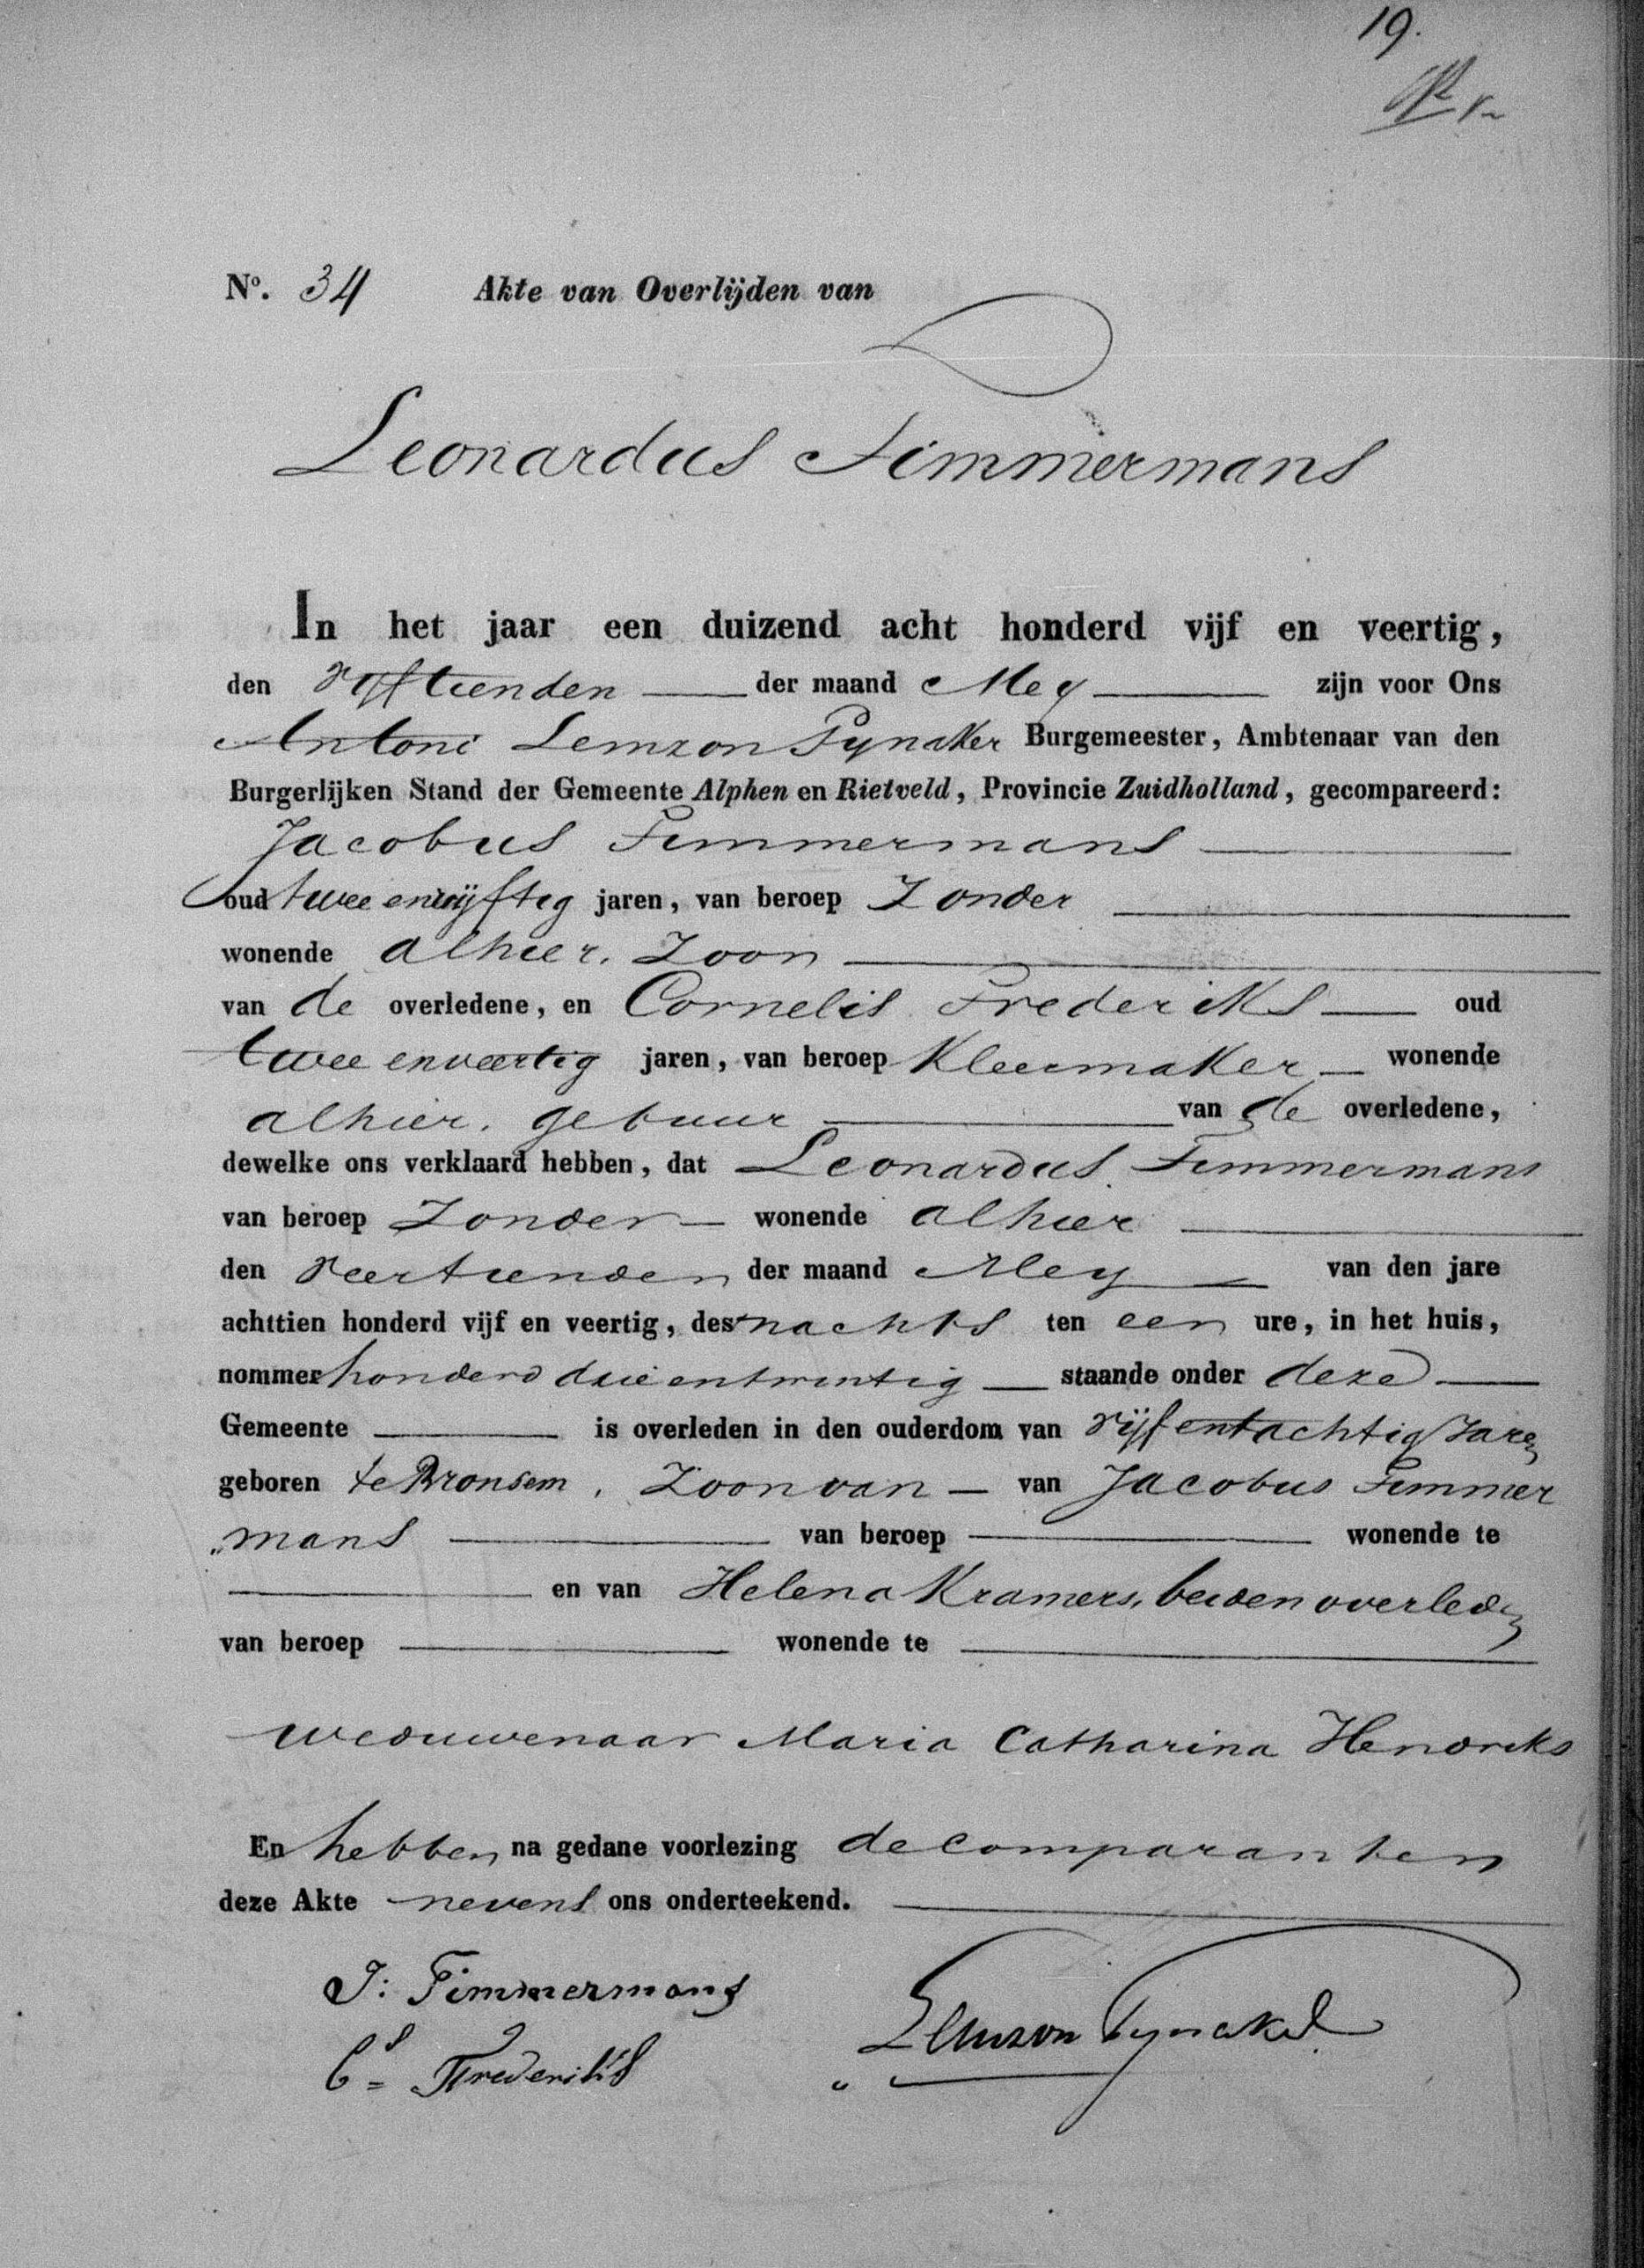 19.
N°. 34 Akte van Overlijden van
Leonardus Timmermans
In het jaar een duizend acht honderd vijf en veertig,
den vyftienden der maand Mey zijn voor Ons
Antoni Lemzon Pynaker Burgemeester, Ambtenaar van den
Burgerlijken Stand der Gemeente Alphen en Rietveld, Provincie Zuidholland, gecompareerd:
Jacobus Timmermans
oud twee envijftig jaren, van beroep Zonder
wonende alhier. Zoon
van de overledene, en Cornelis Frederiks oud
twee enveertig jaren, van beroep Kleermaker wonende
alhier. gebuur van de overledene,
dewelke ons verklaard hebben, dat Leonardus Timmermans
van beroep Zonder wonende alhier
den Veertienden der maand Mey van den jare
achttien honderd vijf en veertig, des nachts ten een ure, in het huis,
nommer honderd drie entwintig staande onder deze
Gemeente is overleden in den ouderdom van vijf entachtig Jaren
geboren te Bronsem, Zoon van van Jacobus Timmer
„mans van beroep wonende te
en van Helena Kramers, beiden overleden
van beroep wonende te
weduwenaar Maria Catharina Hendriks
En hebben na gedane voorlezing de comparanten
deze Akte nevens ons onderteekend.
J: Timmermans
Cs = Frederiks Lemzon Pynaker